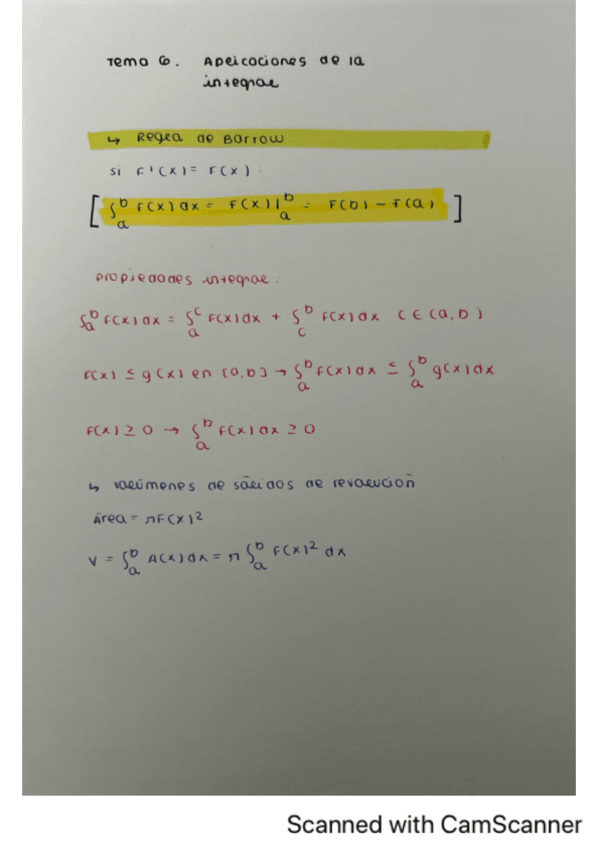 Tema 6. Aplicaciones de la
integral
↳ Regla de Barrow
si F'(x) = F(x) :
[ ∫_a^b F(x) dx = F(x) |_a^b = F(b) - F(a) ]
Propiedades integral :
∫_a^b F(x) dx = ∫_a^c F(x) dx + ∫_c^b F(x) dx c ∈ (a, b)
F(x) ≤ g(x) en [a, b] → ∫_a^b F(x) dx ≤ ∫_a^b g(x) dx
F(x) ≥ 0 → ∫_a^b F(x) dx ≥ 0
↳ volúmenes de sólidos de revolución
Área = πF(x)²
V = ∫_a^b A(x) dx = π ∫_a^b F(x)² dx
Scanned with CamScanner